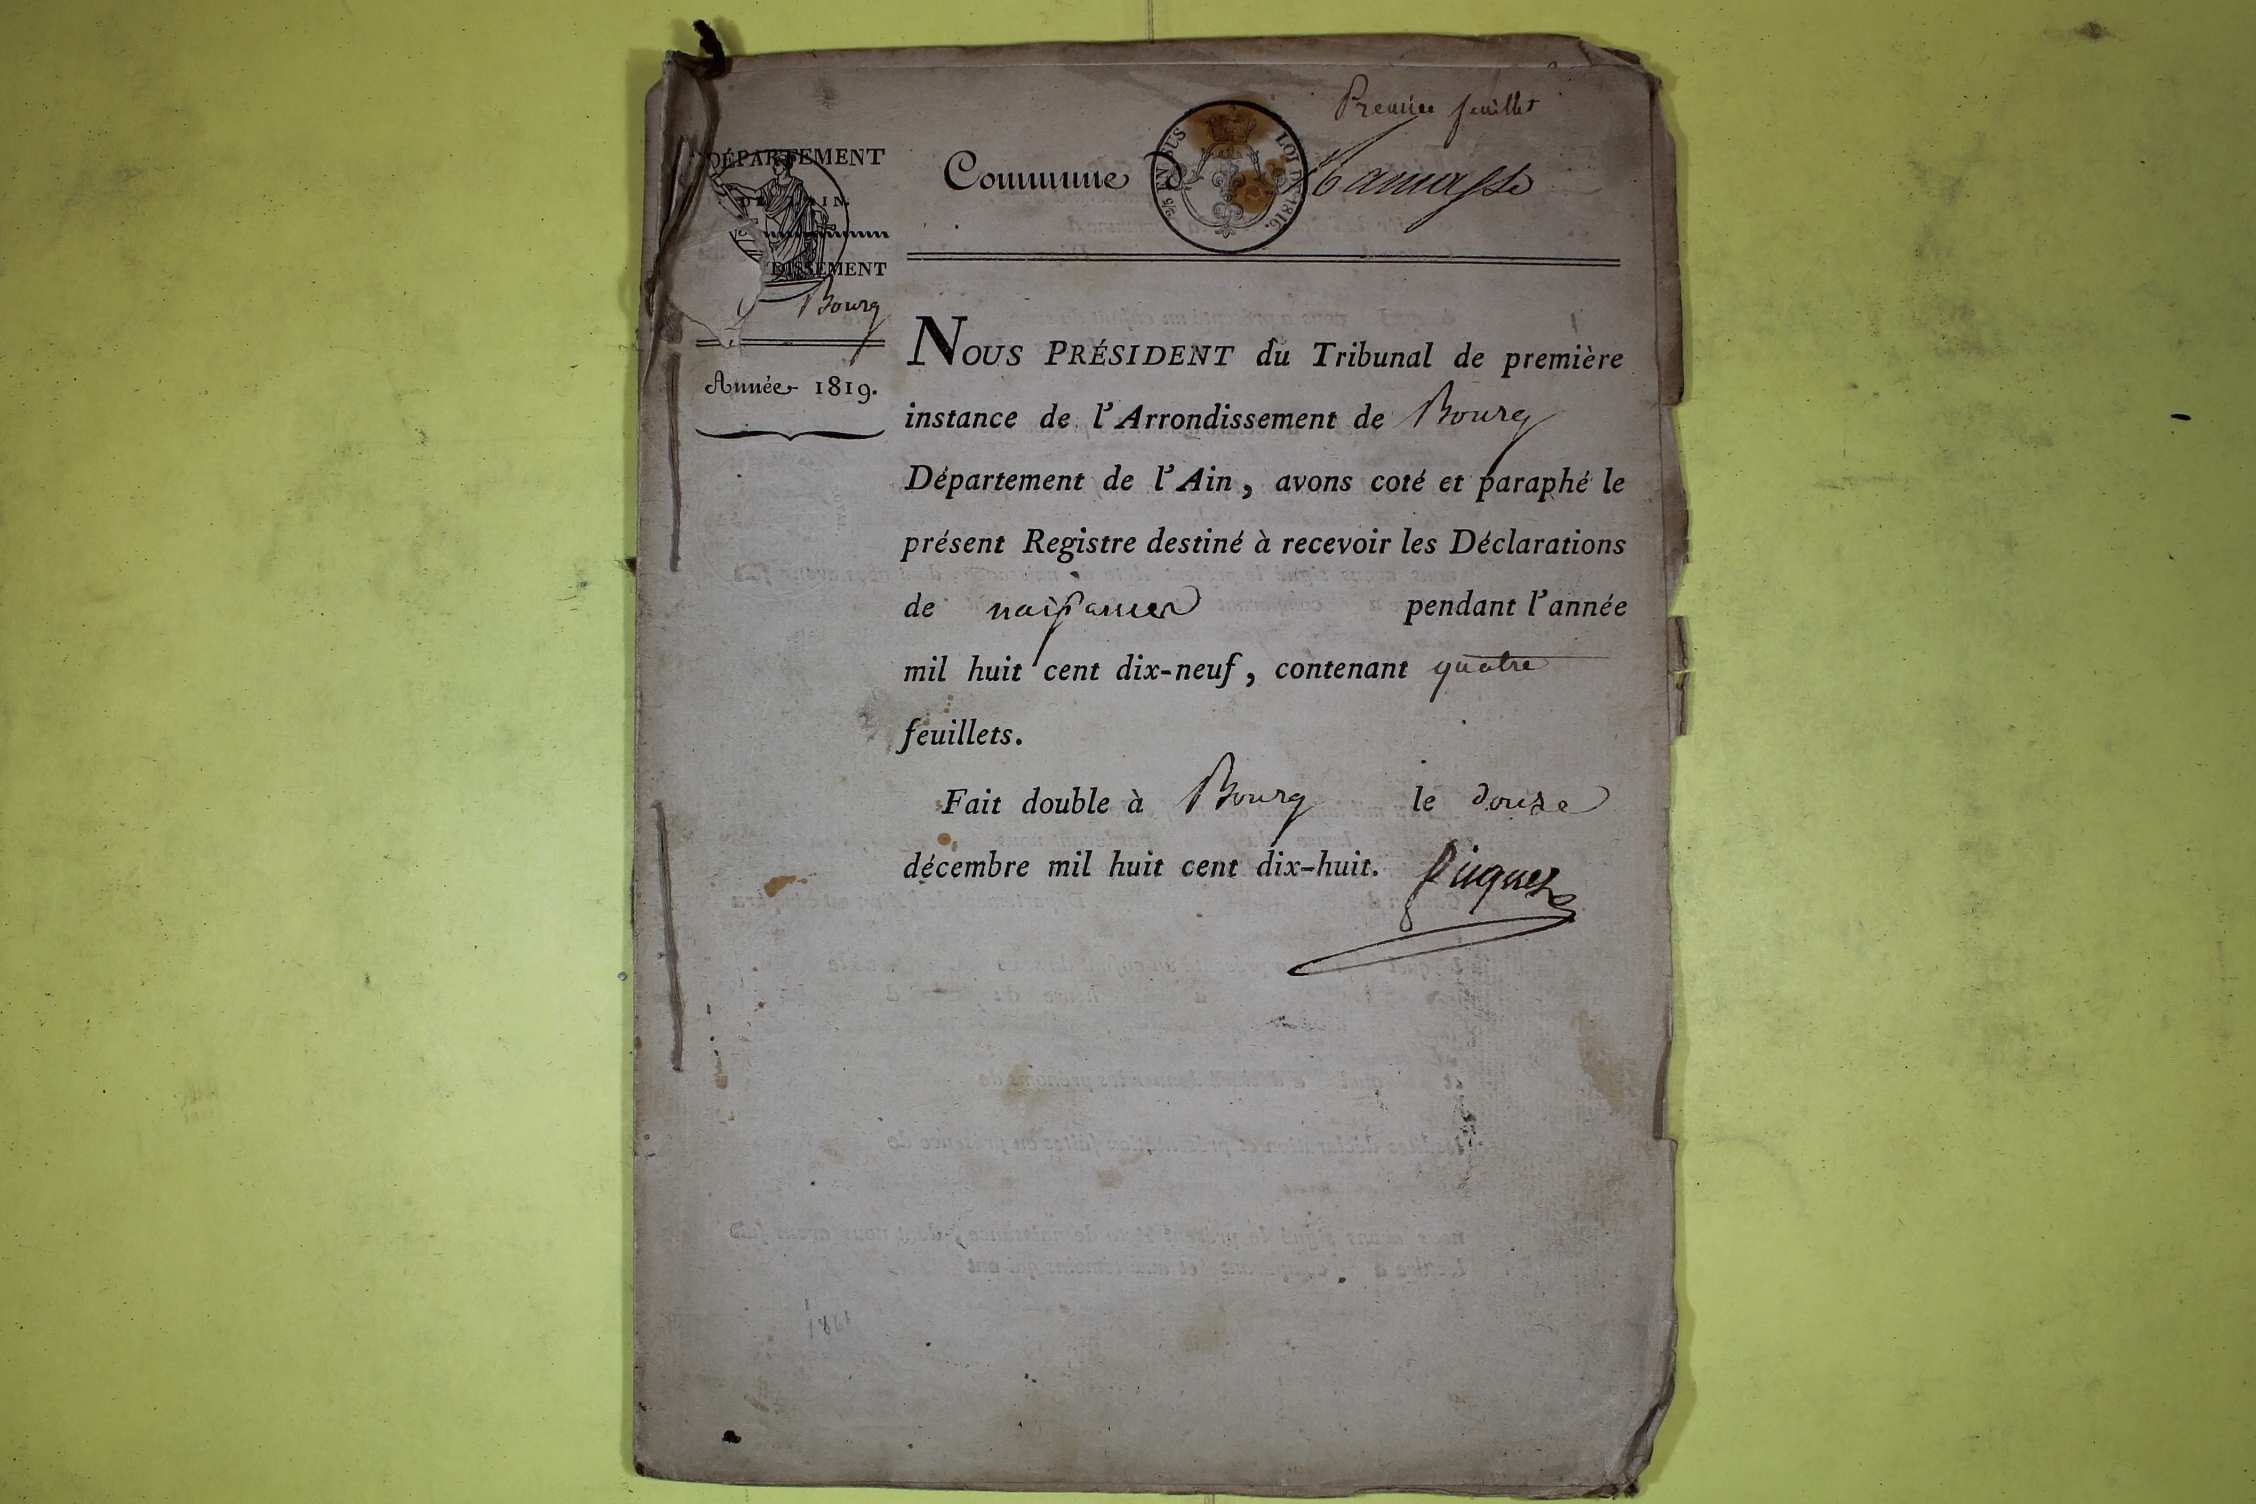 Premier feuillet
DÉPARTEMENT
DE L'AIN.
DISSEMENT
Bourg
Année 1819.
Commune d Ramasse
EN SUS
LOI DE 1816.
NOUS PRÉSIDENT du Tribunal de première
instance de l'Arrondissement de Bourg
Département de l'Ain, avons coté et paraphé le
présent Registre destiné à recevoir les Déclarations
de naissances pendant l'année
mil huit cent dix-neuf, contenant quatre
feuillets.
Fait double à Bourg le douze
décembre mil huit cent dix-huit.